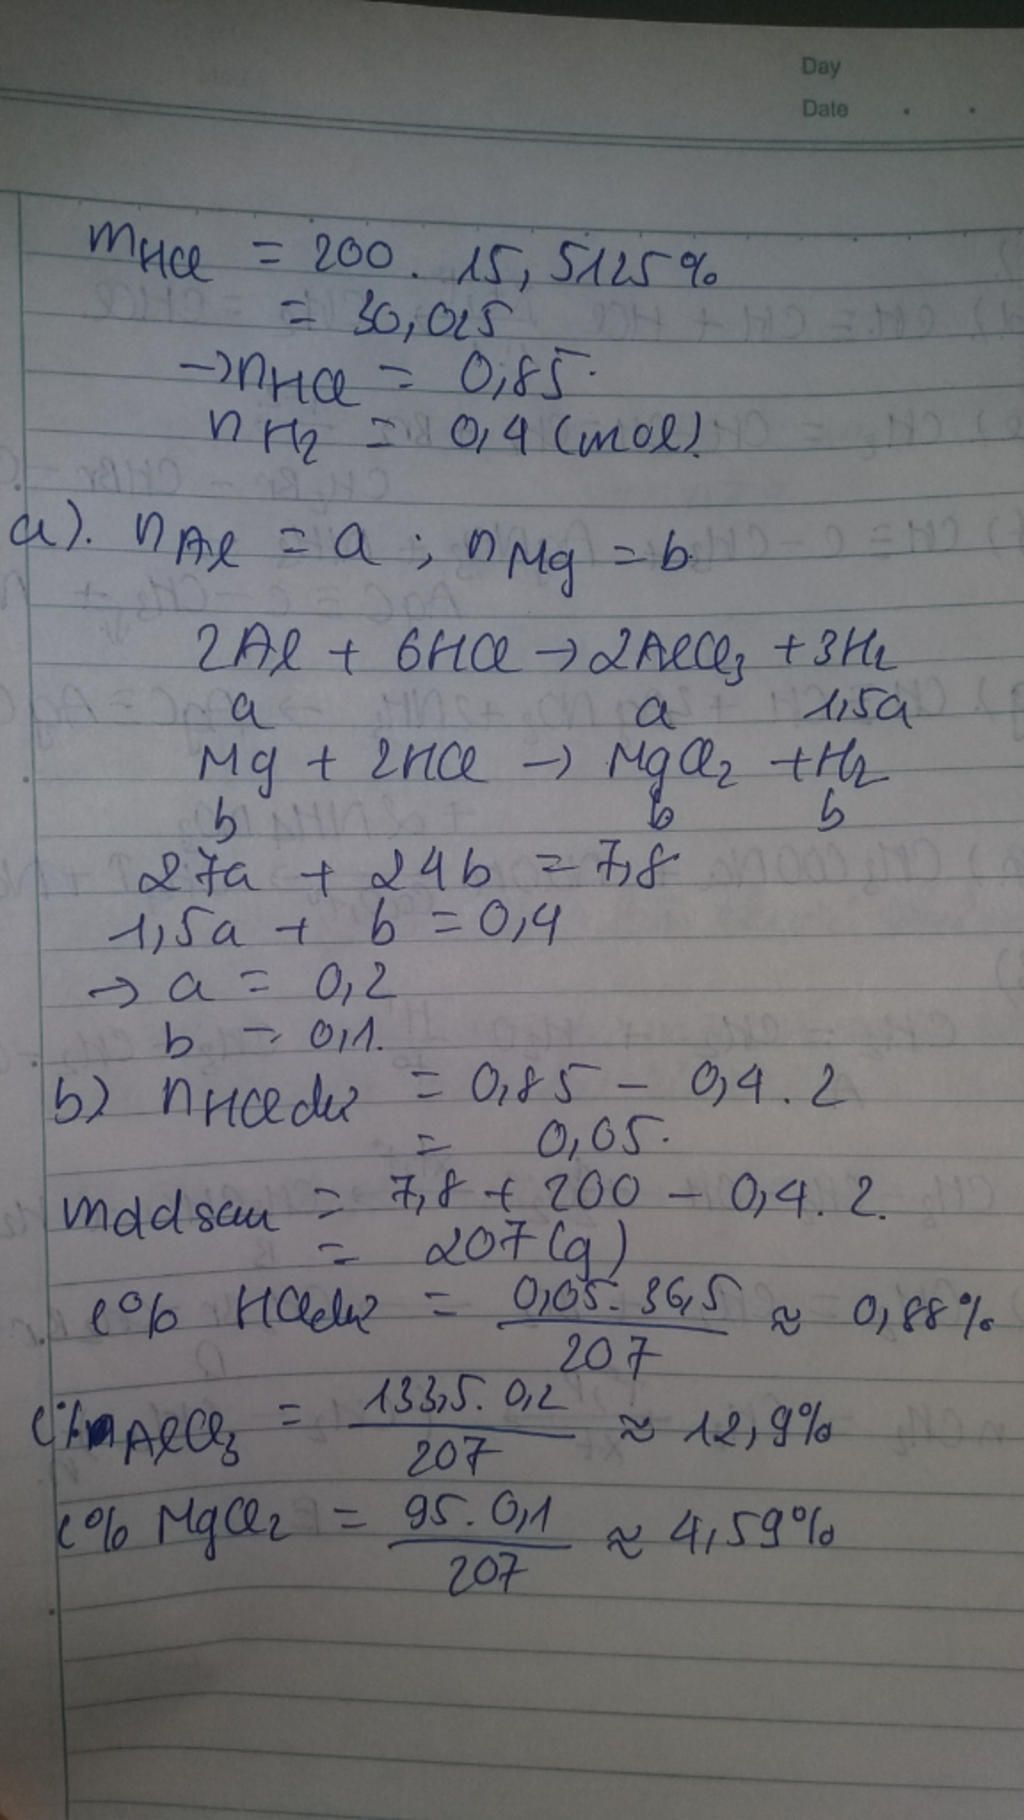 Day
Date
mHCl = 200. 15,5125%
= 30,025
→nHCl = 0,85.
nH2 = 0,4 (mol).
a). nAl = a ; nMg = b.
2Al + 6HCl → 2AlCl3 + 3H2
a a 1,5a
Mg + 2HCl → MgCl2 + H2
b b b
27a + 24b = 7,8
1,5a + b = 0,4
→ a = 0,2
b = 0,1.
b) nHCl dư = 0,85 - 0,4. 2
= 0,05.
mdd sau = 7,8 + 200 - 0,4. 2.
= 207 (g)
C% HCl dư = 0,05. 36,5 / 207 ≈ 0,88%
C% AlCl3 = 133,5. 0,2 / 207 ≈ 12,9%
C% MgCl2 = 95. 0,1 / 207 ≈ 4,59%